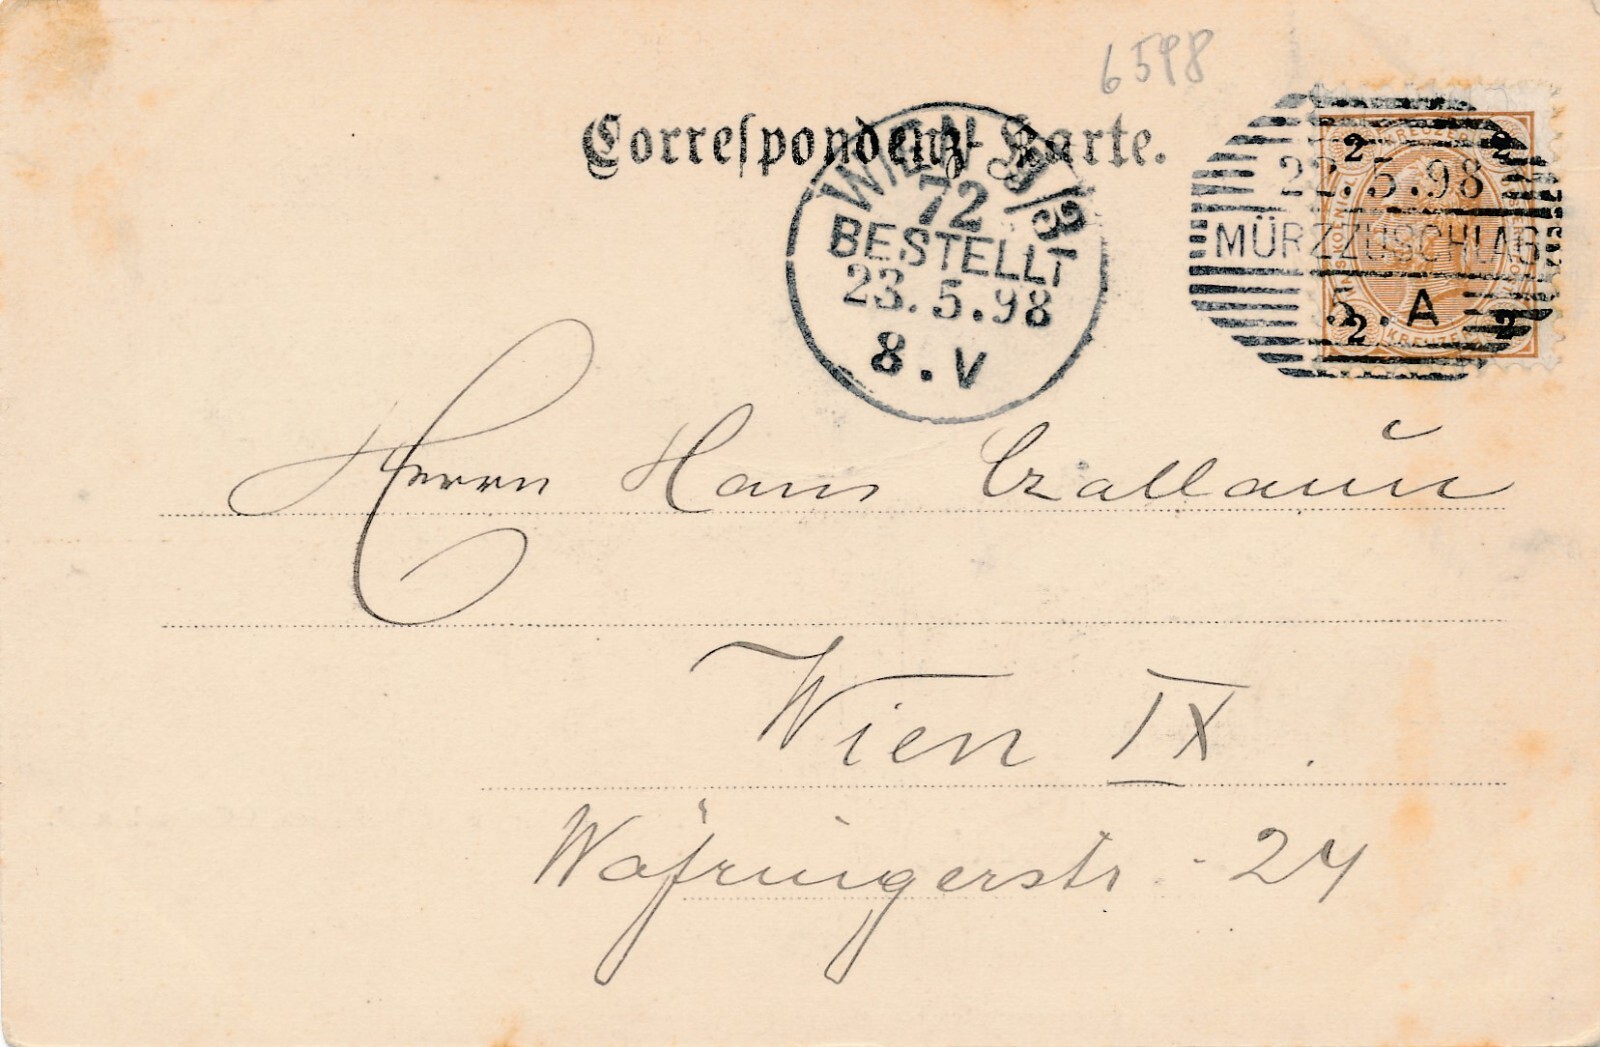 6598
Correspondenz-Karte.
WIEN 9/3
72
BESTELLT
23.5.98
8.V
2 KREUZER 2
22.5.98
MÜRZZUSCHLAG
5.A
2 KREUZER 2
Herrn Hans Czallaun
Wien IX.
Währingerstr. 24